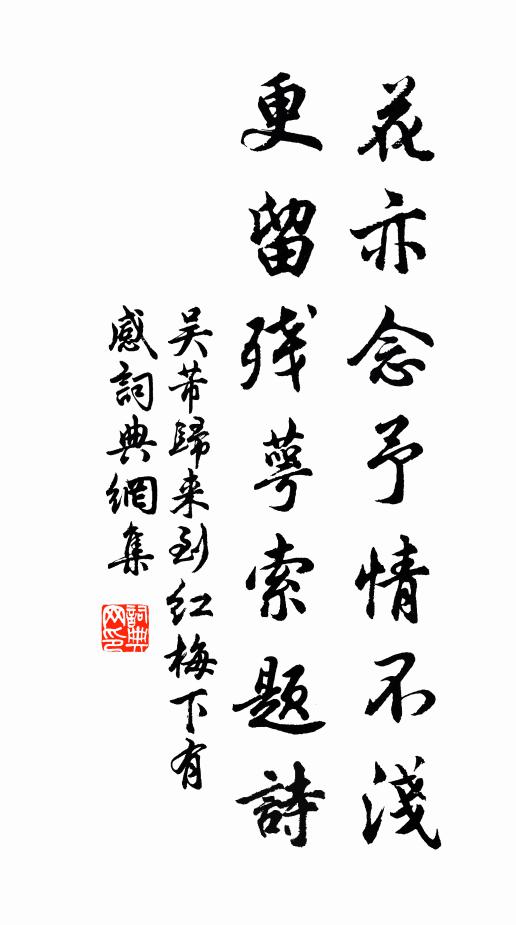 花亦念予情不淺
更留残萼索题詩
吴芾歸来到红梅下有
感詞典網集
詞典网印